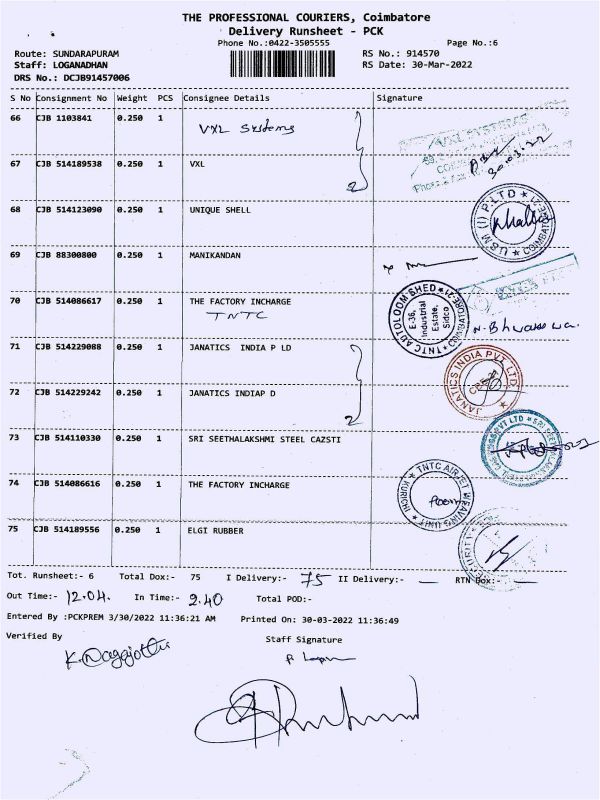 THE PROFESSIONAL COURIERS, Coimbatore
Delivery Runsheet - PCK
Phone No.:0422-3505555 Page No.:6
Route: SUNDARAPURAM RS No.: 914570
Staff: LOGANADHAN RS Date: 30-Mar-2022
DRS No.: DCJB91457006
S No Consignment No Weight PCS Consignee Details Signature
66 CJB 1103841 0.250 1 VXL Systems
30.03.22
67 CJB 514189538 0.250 1 VXL 2
68 CJB 514123090 0.250 1 UNIQUE SHELL
USM (I) P.LTD COIMBATORE-21
69 CJB 88300800 0.250 1 MANIKANDAN
70 CJB 514086617 0.250 1 THE FACTORY INCHARGE
TNTC
TNTC AUTOLOOM SHED COIMBATORE-21
E-36, Industrial Estate, Sidco
71 CJB 514229088 0.250 1 JANATICS INDIA P LD
JANATICS INDIA PVT LTD
72 CJB 514229242 0.250 1 JANATICS INDIAP D 2
73 CJB 514110330 0.250 1 SRI SEETHALAKSHMI STEEL CAZSTI
74 CJB 514086616 0.250 1 THE FACTORY INCHARGE
TNTC AIRJET WEAVING UNIT KURICHI
75 CJB 514189556 0.250 1 ELGI RUBBER
Tot. Runsheet:- 6 Total Dox:- 75 I Delivery:- 75 II Delivery:- — RTN Dox:- —
Out Time:- 12.04. In Time:- 2.40 Total POD:-
Entered By :PCKPREM 3/30/2022 11:36:21 AM Printed On: 30-03-2022 11:36:49
Verified By Staff Signature